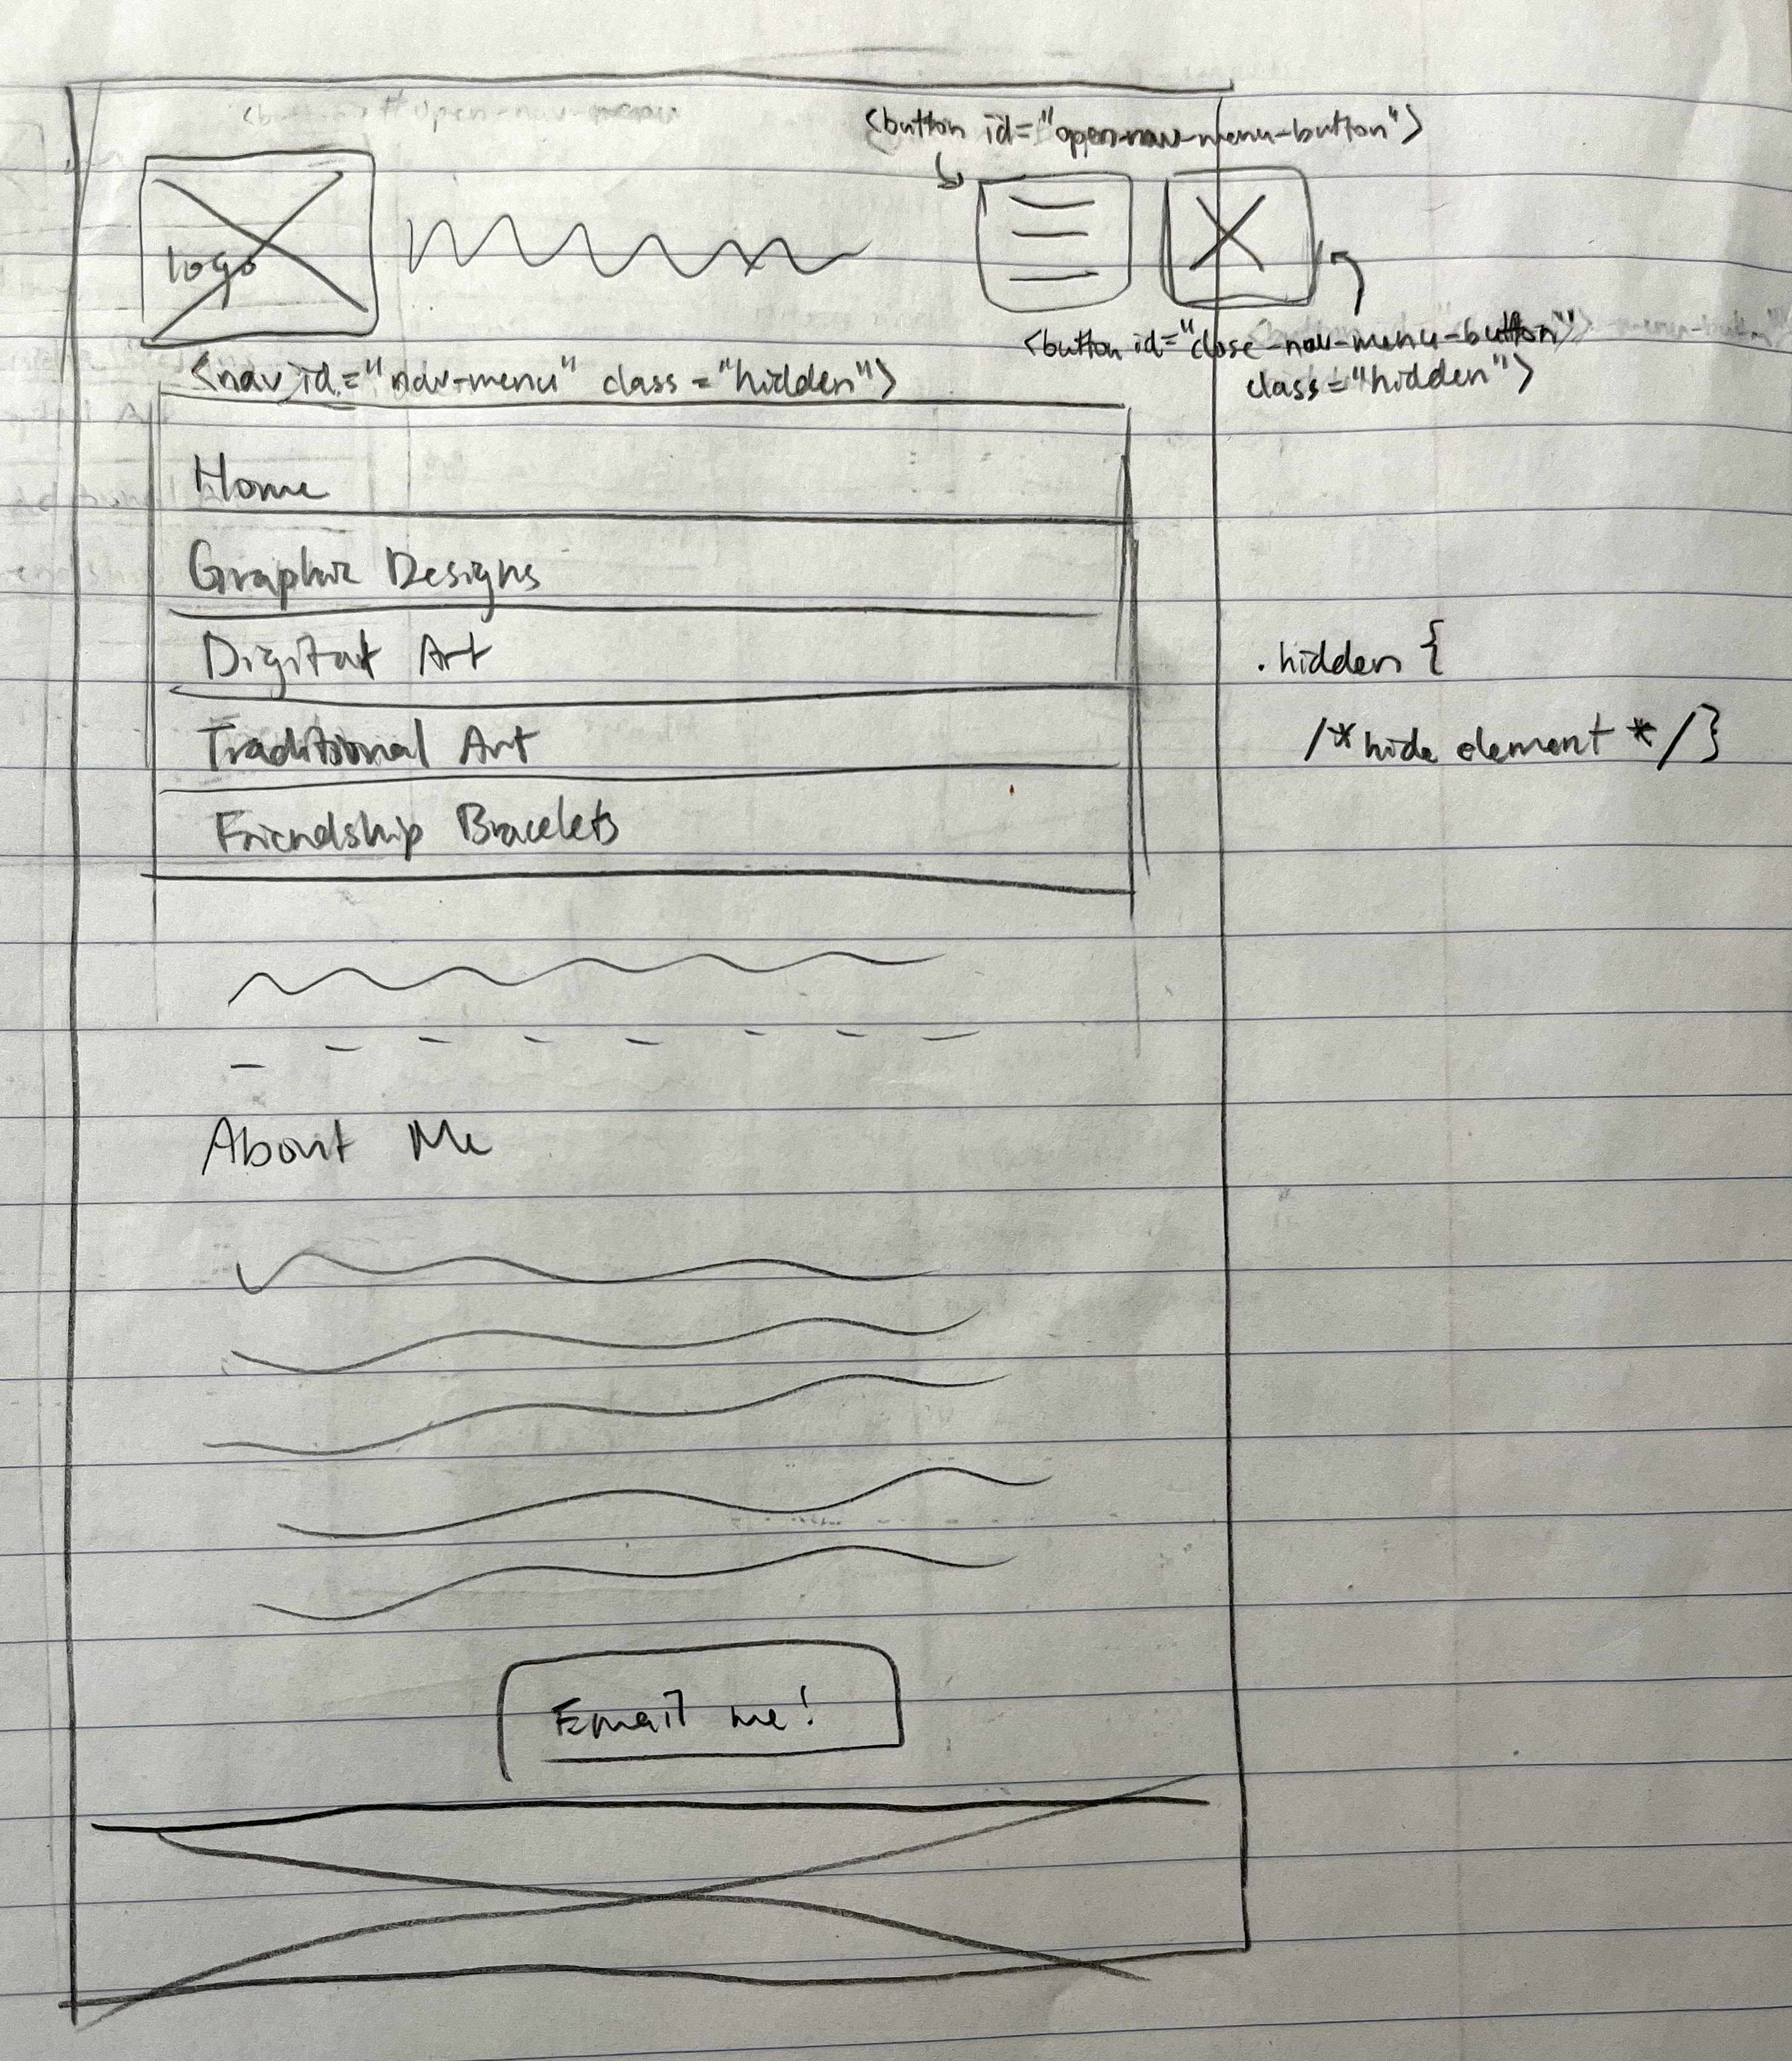 <button id="open-nav-menu-button">
logo
<button id="close-nav-menu-button"
class="hidden">
<nav id="nav-menu" class="hidden">
Home
Graphic Designs
Digital Art
Traditional Art
Friendship Bracelets
.hidden {
/*hide element */}
About Me
Email me!